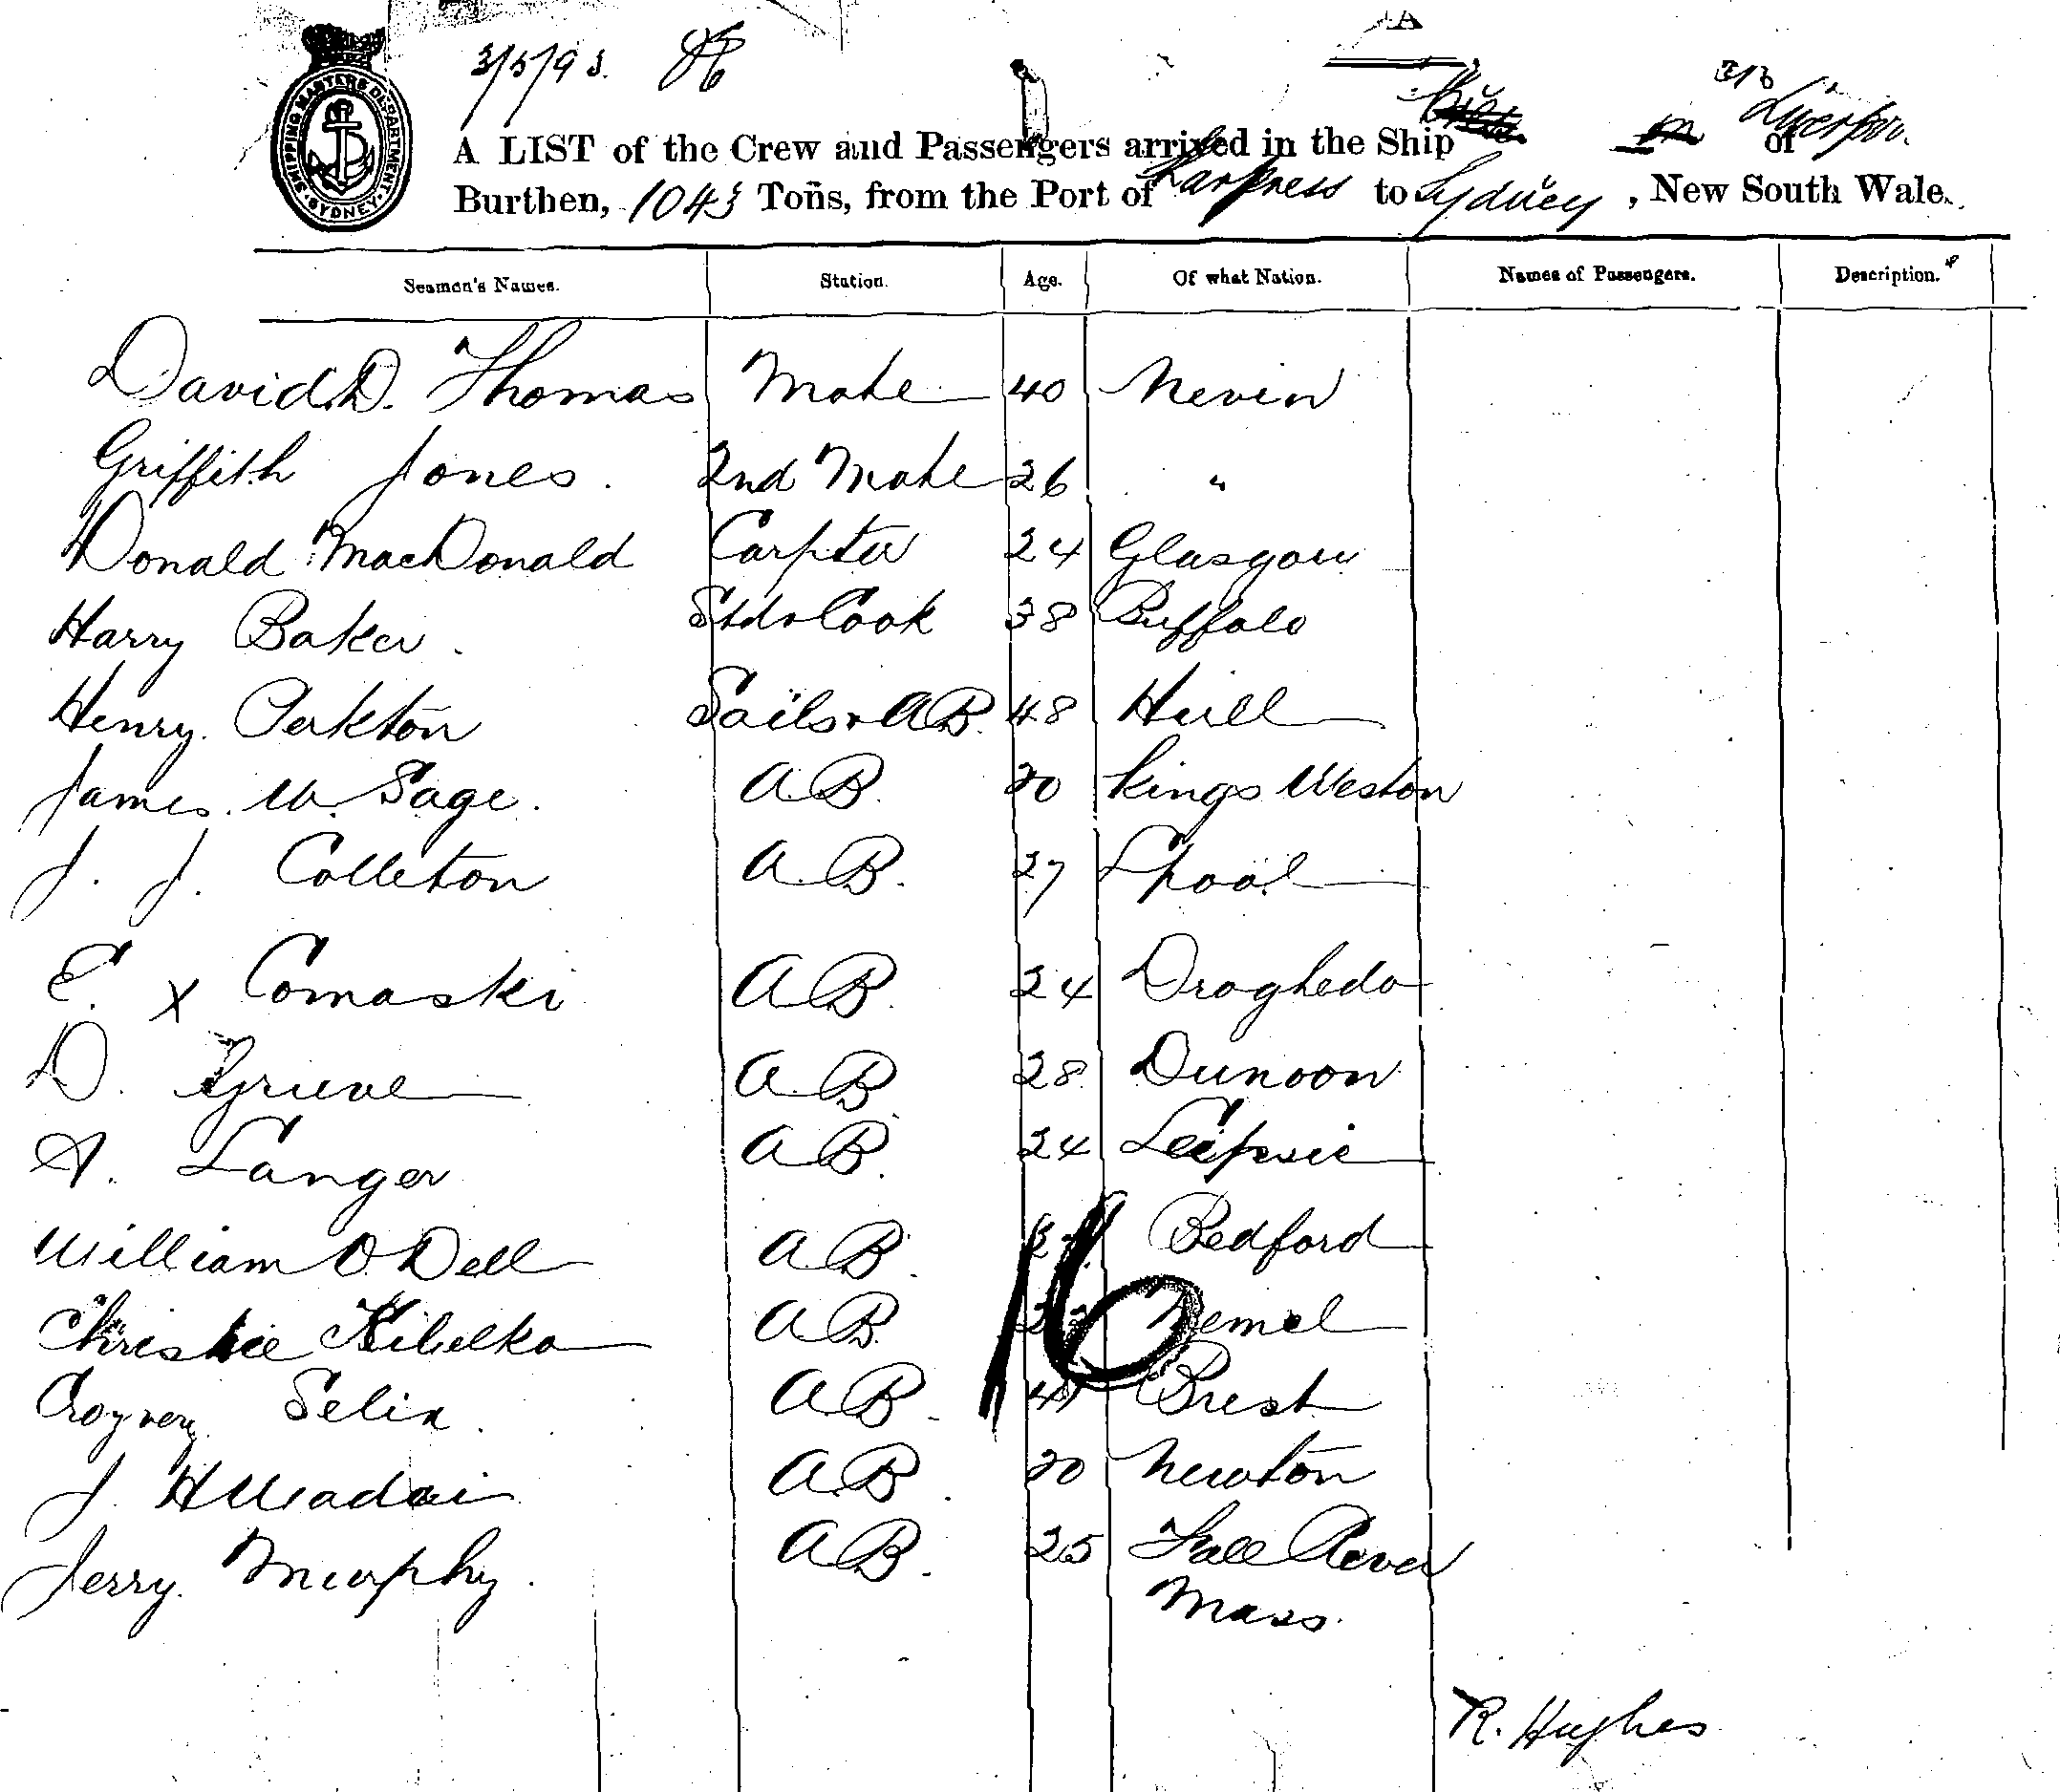 SHIPPING MASTERS DEPARTMENT SYDNEY
3/5/93.
A LIST of the Crew and Passengers arrived in the Ship of Liverpoo
Burthen, 1043 Tons, from the Port of to Sydney, New South Wale
Seamen's Names. Station. Age. Of what Nation. Names of Passengers. Description.
David D. Thomas Mate 40 Nevin
Griffith Jones. 2nd Mate 26 "
Donald MacDonald Carpter 24 Glasgow
Harry Baker. Std & Cook 38 Buffalo
Henry. Perkton Sails & AB. 48 Hull
James. W. Sage. A.B. 20 Kings Weston
J. J. Colleton A.B. 27 Lpool
E. x Comaski AB. 24 Drogheda
D. Grieve A.B. 28 Dunoon
A. Langer A.B. 24 Leipsic
William O.Dell AB. Bedford
Christie AB. Memel
Selin A.B. Brest
J. A.B. 20 Newton
Jerry. Murphy. AB. 25 Fall River
Mass.
16
R. Hughes